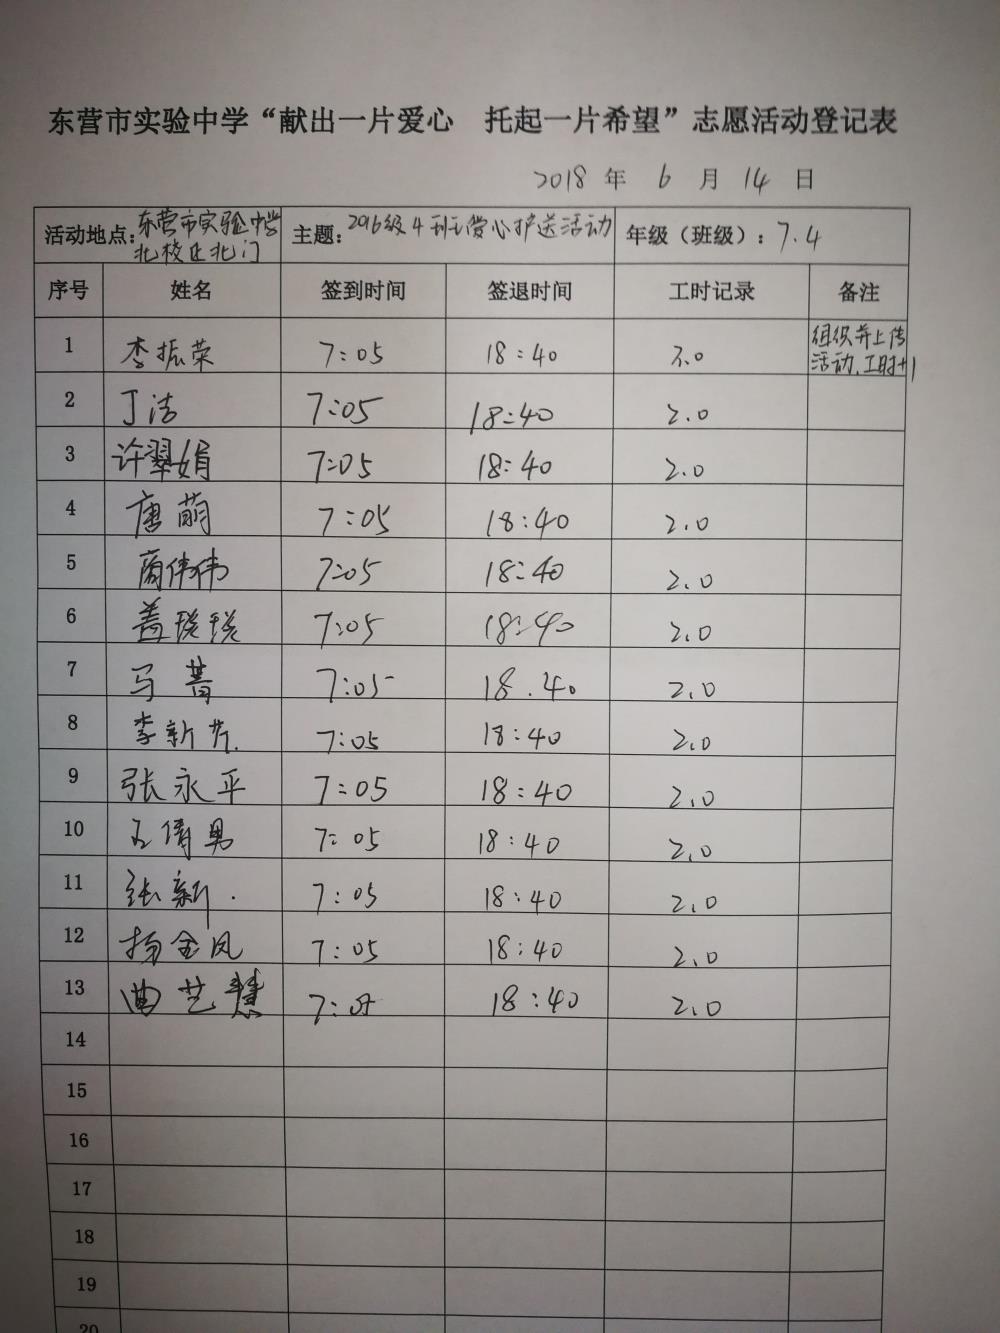 东营市实验中学“献出一片爱心 托起一片希望”志愿活动登记表
2018 年 6 月 14 日
活动地点:东营市实验中学北校区北门 主题:2016级4班爱心护送活动 年级(班级):7.4
序号 姓名 签到时间 签退时间 工时记录 备注
1 李振荣 7:05 18:40 3.0 组织并上传活动,工时+1
2 丁洁 7:05 18:40 2.0
3 许翠娟 7:05 18:40 2.0
4 唐萌 7:05 18:40 2.0
5 商伟伟 7:05 18:40 2.0
6 盖瑛瑛 7:05 18:40 2.0
7 马菁 7:05 18.40 2.0
8 李新芹. 7:05 18:40 2.0
9 张永平 7:05 18:40 2.0
10 王倩男 7:05 18:40 2.0
11 张新. 7:05 18:40 2.0
12 杨金凤 7:05 18:40 2.0
13 曲艺慧 7:05 18:40 2.0
14
15
16
17
18
19
20